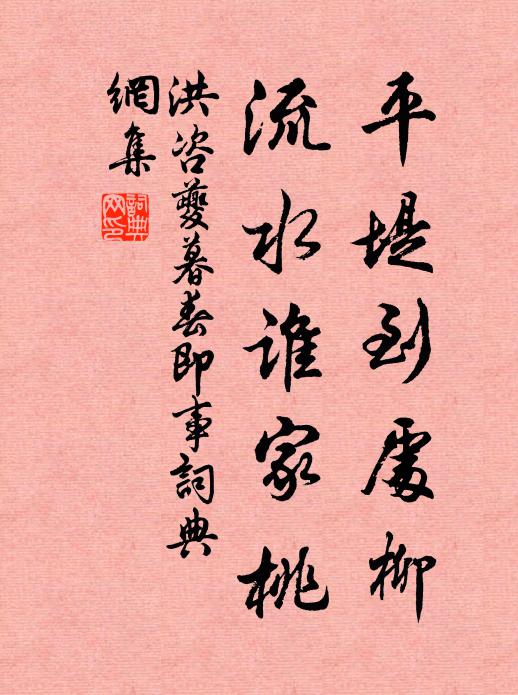 平堤到處柳
流水誰家桃
洪咨夔暮春即事詞典
網集
詞典
网印